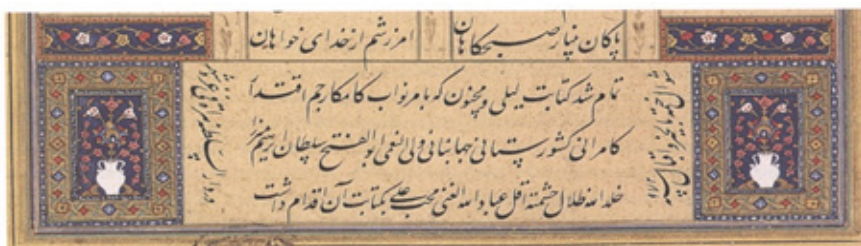 پاکان نیاز صبحکاهان امرزشم از خدای خواهان
تمام شد کتابت لیلی و مجنون که بامر نواب کامکار جم اقتدار
کامرانی کشورستانی جهانبانی ولی النعمی ابوالفتح سلطان ابرهیم میرزا
خلد الله ظلال حشمته اقل عباد الله الغنی محب علی بکتابت آن اقدام داشت
شوال ختم بالخیر و اقبال سنه